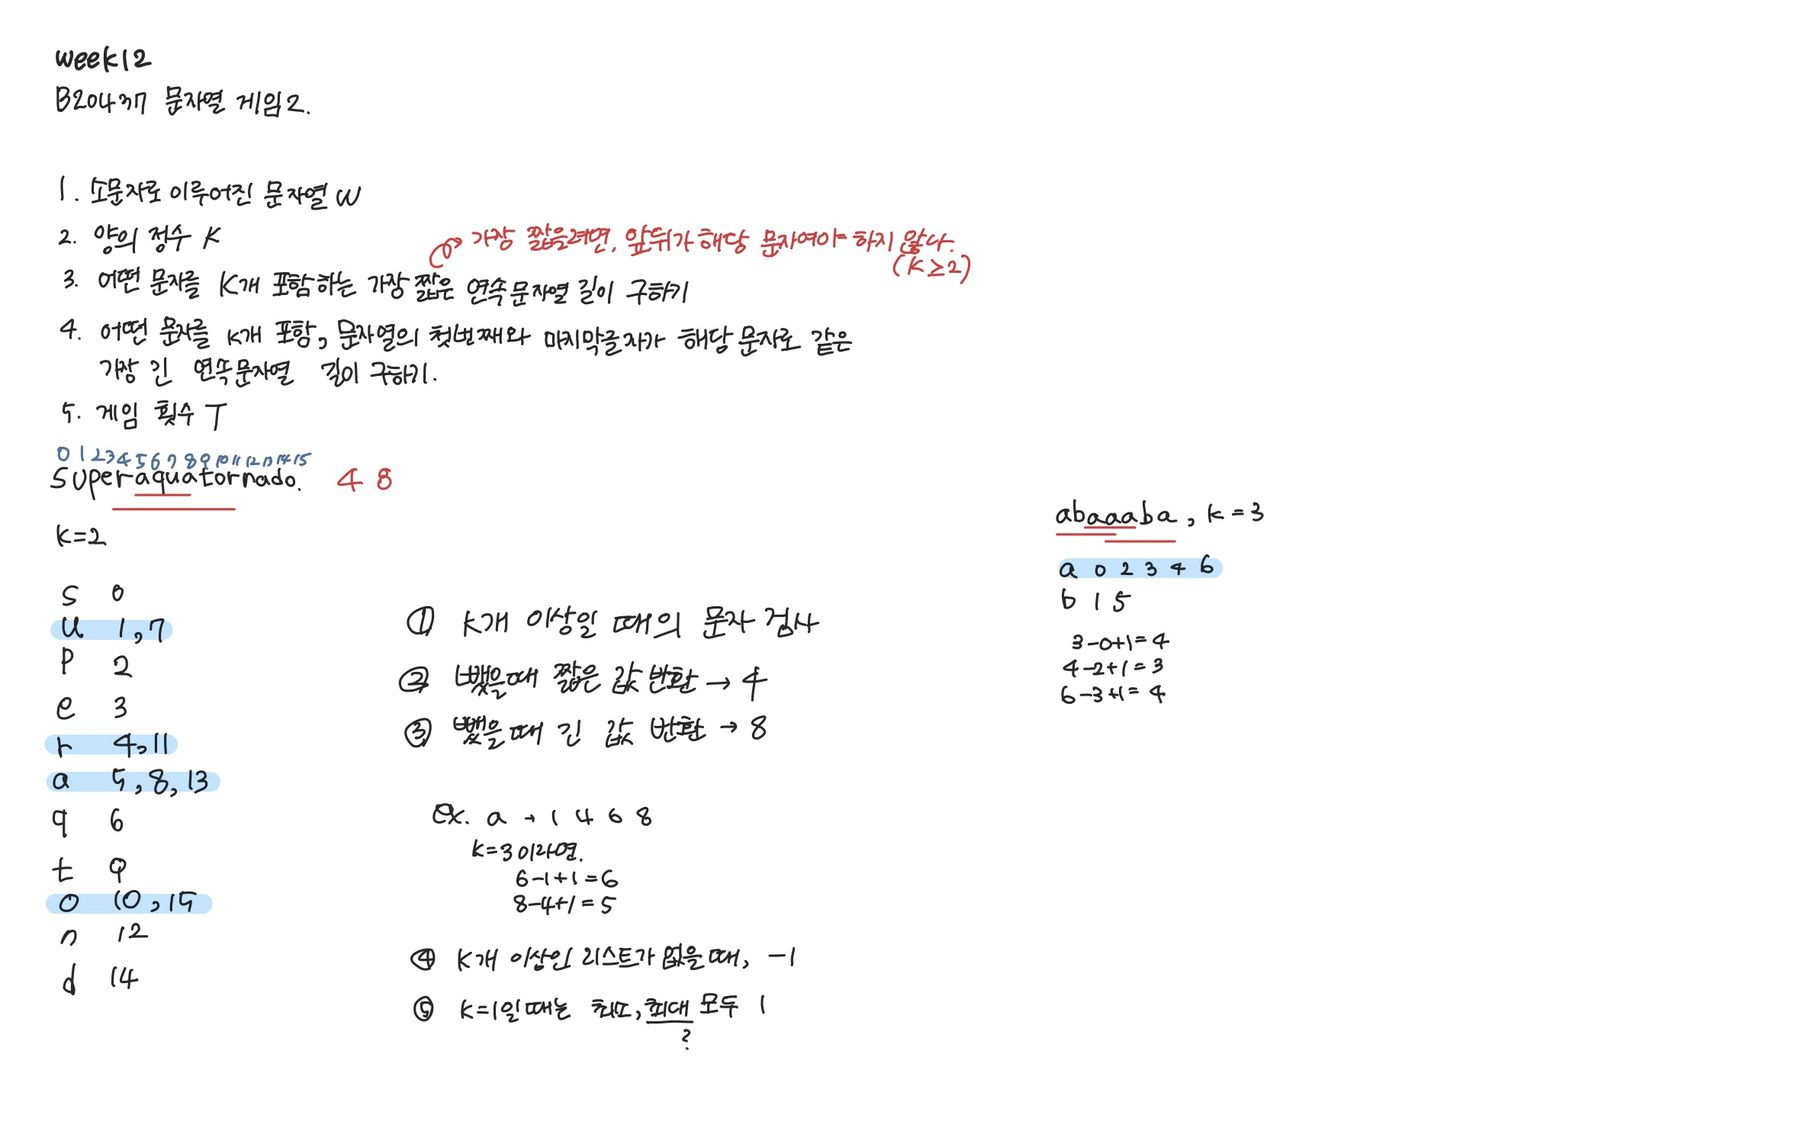 week12
B20437 문자열 게임2.
1. 소문자로 이루어진 문자열 W
2. 양의 정수 K
가장 짧을려면, 앞뒤가 해당 문자여야 하지 않나.
(K≥2)
3. 어떤 문자를 K개 포함하는 가장 짧은 연속문자열 길이 구하기
4. 어떤 문자를 K개 포함, 문자열의 첫번째와 마지막글자가 해당 문자로 같은
가장 긴 연속문자열 길이 구하기.
5. 게임 횟수 T
0 1 2 3 4 5 6 7 8 9 10 11 12 13 14 15
superaquatornado. 4 8
K=2
s 0
u 1,7
p 2
e 3
r 4,11
a 5,8,13
q 6
t 9
o 10,15
n 12
d 14
① K개 이상일 때의 문자 검사
② 뺐을때 짧은 값 반환 → 4
③ 뺐을때 긴 값 반환 → 8
ex. a → 1 4 6 8
K=3이라면.
6-1+1=6
8-4+1=5
④ K개 이상인 리스트가 없을 때, -1
⑤ K=1일 때는 최소, 최대 모두 1
?
abaaaba, K=3
a 0 2 3 4 6
b 1 5
3-0+1=4
4-2+1=3
6-3+1=4